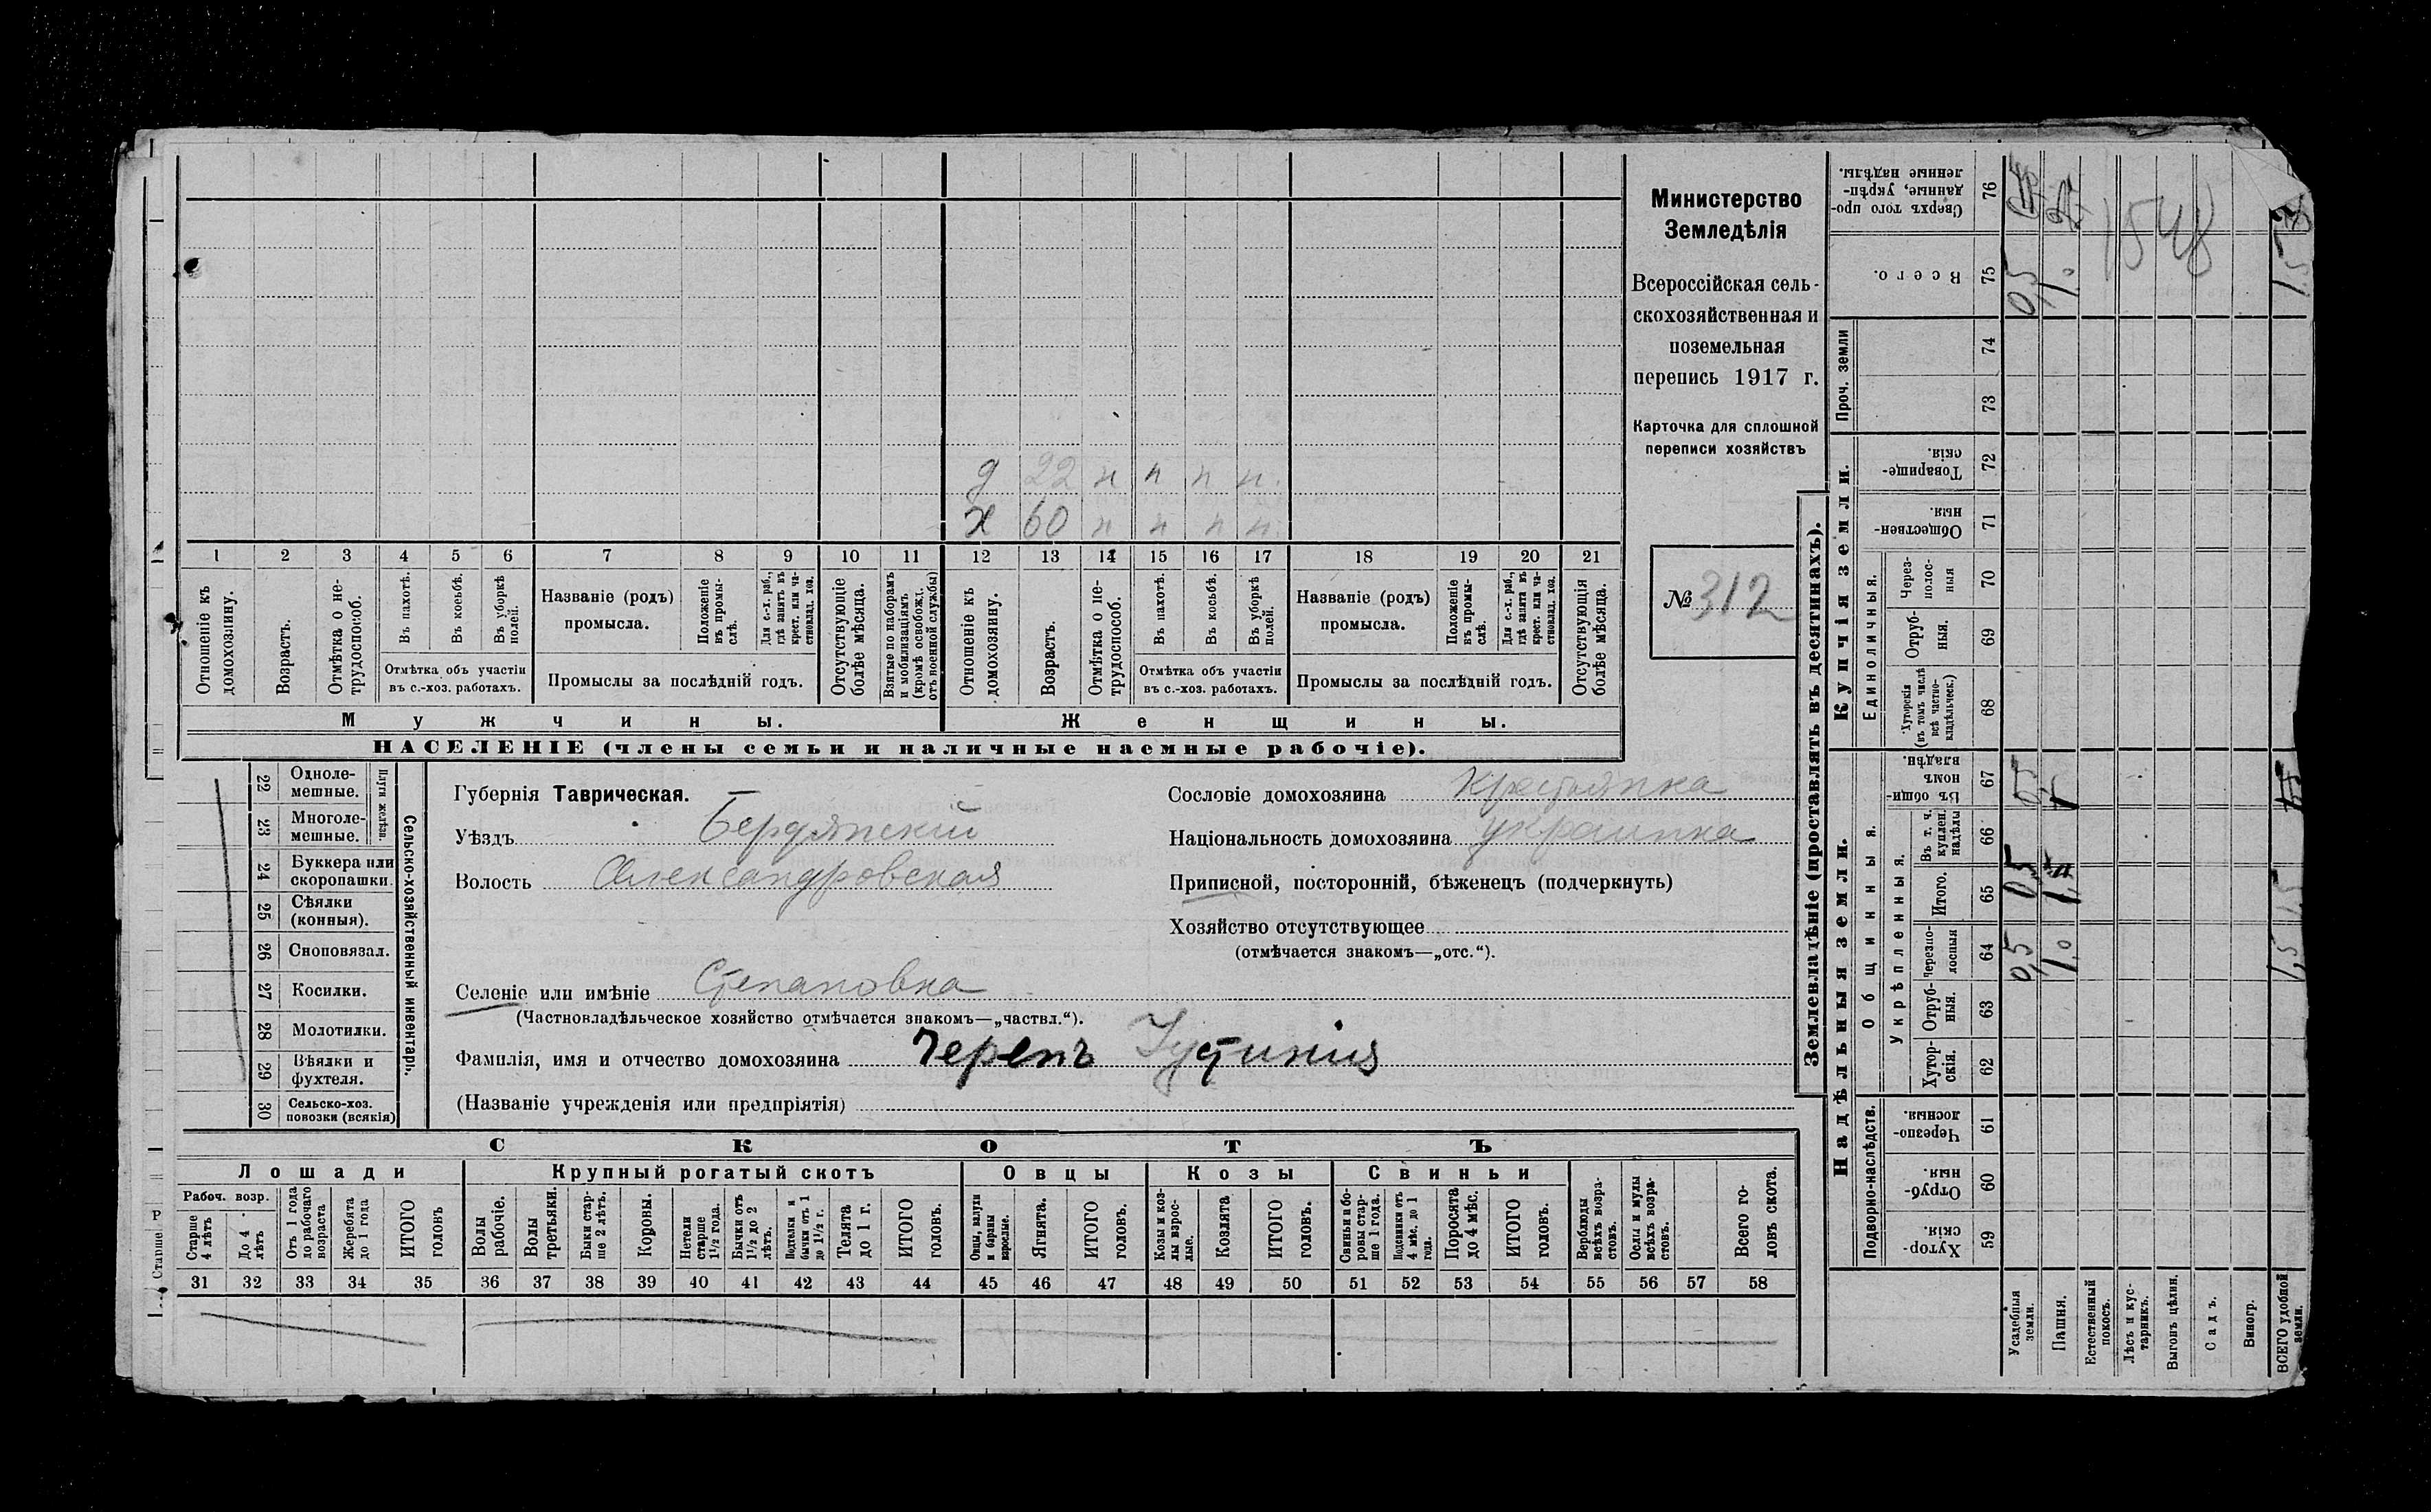 Министерство
Земледѣлія
Всероссійская сель-
скохозяйственная и
поземельная
перепись 1917 г.
Карточка для сплошной
переписи хозяйствъ
№ 312
д 22 н н н н.
х 60 н н н н.
1 2 3 4 5 6 7 8 9 10 11 12 13 14 15 16 17 18 19 20 21
Отношеніе къ домохозяину.
Возрастъ.
Отмѣтка о не-трудоспособ.
Въ пахотѣ.
Въ косьбѣ.
Въ уборкѣ полей.
Отмѣтка объ участіи
въ с.-хоз. работахъ.
Названіе (родъ)
промысла.
Положеніе въ промы-слѣ.
Для с.-х. раб., гдѣ занятъ въ крест. или ча-стновлад. хоз.
Промыслы за послѣдній годъ.
Отсутствующіе болѣе мѣсяца.
Взятые по наборамъ и мобилизаціямъ (кромѣ освобожд. отъ военной службы)
Отношеніе къ домохозяину.
Возрастъ.
Отмѣтка о не-трудоспособ.
Въ пахотѣ.
Въ косьбѣ.
Въ уборкѣ полей.
Отмѣтка объ участіи
въ с.-хоз. работахъ.
Названіе (родъ)
промысла.
Положеніе въ промы-слѣ.
Для с.-х. раб., гдѣ занята въ крест. или ча-стновлад. хоз.
Промыслы за послѣдній годъ.
Отсутствующія болѣе мѣсяца.
Мужчины.
Женщины.
НАСЕЛЕНІЕ (члены семьи и наличные наемные рабочіе).
Сельско-хозяйственный инвентарь.
Плуги желѣзн.
22 Одноле-мешные.
23 Многоле-мешные.
24 Буккера или скоропашки.
25 Сѣялки (конныя).
26 Сноповязал.
27 Косилки.
28 Молотилки.
29 Вѣялки и фухтеля.
30 Сельско-хоз. повозки (всякія)
Губернія Таврическая.
Уѣздъ Бердянскій
Волость Александровская
Селеніе или имѣніе Степановка
(Частновладѣльческое хозяйство отмѣчается знакомъ—„частвл.“).
Фамилія, имя и отчество домохозяина Черепъ Устинія
(Названіе учрежденія или предпріятія)
Сословіе домохозяина крестьянка
Національность домохозяина украинка
Приписной, посторонній, бѣженецъ (подчеркнуть)
Хозяйство отсутствующее
(отмѣчается знакомъ—„отс.“).
СКОТЪ
Лошади
Крупный рогатый скотъ
Овцы
Козы
Свиньи
Рабоч. возр.
Старше 4 лѣтъ
До 4 лѣтъ
Отъ 1 года до рабочаго возраста
Жеребята до 1 года
ИТОГО головъ
Волы рабочіе.
Волы третьяки.
Быки стар-ше 2 лѣтъ.
Коровы.
Нетели старше 1½ года.
Бычки отъ 1½ до 2 лѣтъ.
Подтелки и бычки отъ 1 до 1½ г.
Телята до 1 г.
ИТОГО головъ.
Овцы, валухи и бараны взрослые.
Ягнята.
ИТОГО головъ.
Козы и коз-лы взрос-лые.
Козлята
ИТОГО головъ.
Свиньи и бо-ровы стар-ше 1 года.
Подсвинки отъ 4 мѣс. до 1 года.
Поросята до 4 мѣс.
ИТОГО головъ.
Верблюды всѣхъ возра-стовъ.
Ослы и мулы всѣхъ возра-стовъ.
Всего го-ловъ скота.
31 32 33 34 35 36 37 38 39 40 41 42 43 44 45 46 47 48 49 50 51 52 53 54 55 56 57 58
Землевладѣніе (проставлять въ десятинахъ).
Надѣльныя земли.
Купчія земли.
Проч. земли
Подворно-наслѣдств.
Общинныя
Укрѣпленныя.
Единоличныя.
Хутор-скія. 59
Отруб-ныя. 60
Черезпо-лосныя. 61
Хутор-скія. 62
Отруб-ныя. 63
Черезпо-лосныя 64
Итого. 65
Въ т. ч. куплен. надѣлы 66
Въ общин-номъ владѣн. 67
Хуторскія (въ томъ числѣ всѣ частно-владѣльческ.) 68
Отруб-ныя. 69
Через-полос-ныя 70
Обществен-ныя. 71
Товарище-скія. 72
73
74
Всего. 75
Сверхъ того про-данные, укрѣп-ленные надѣлы. 76
Усадебныя земли.
0,5 0,5 0,5 0,5
Пашня.
1.0 1.0
Естественный покосъ.
Лѣсъ и кус-тарникъ.
Выгонъ цѣлин.
Садъ.
Виногр.
ВСЕГО удобной земли.
1,5 1,5 1,5
1548
Старше